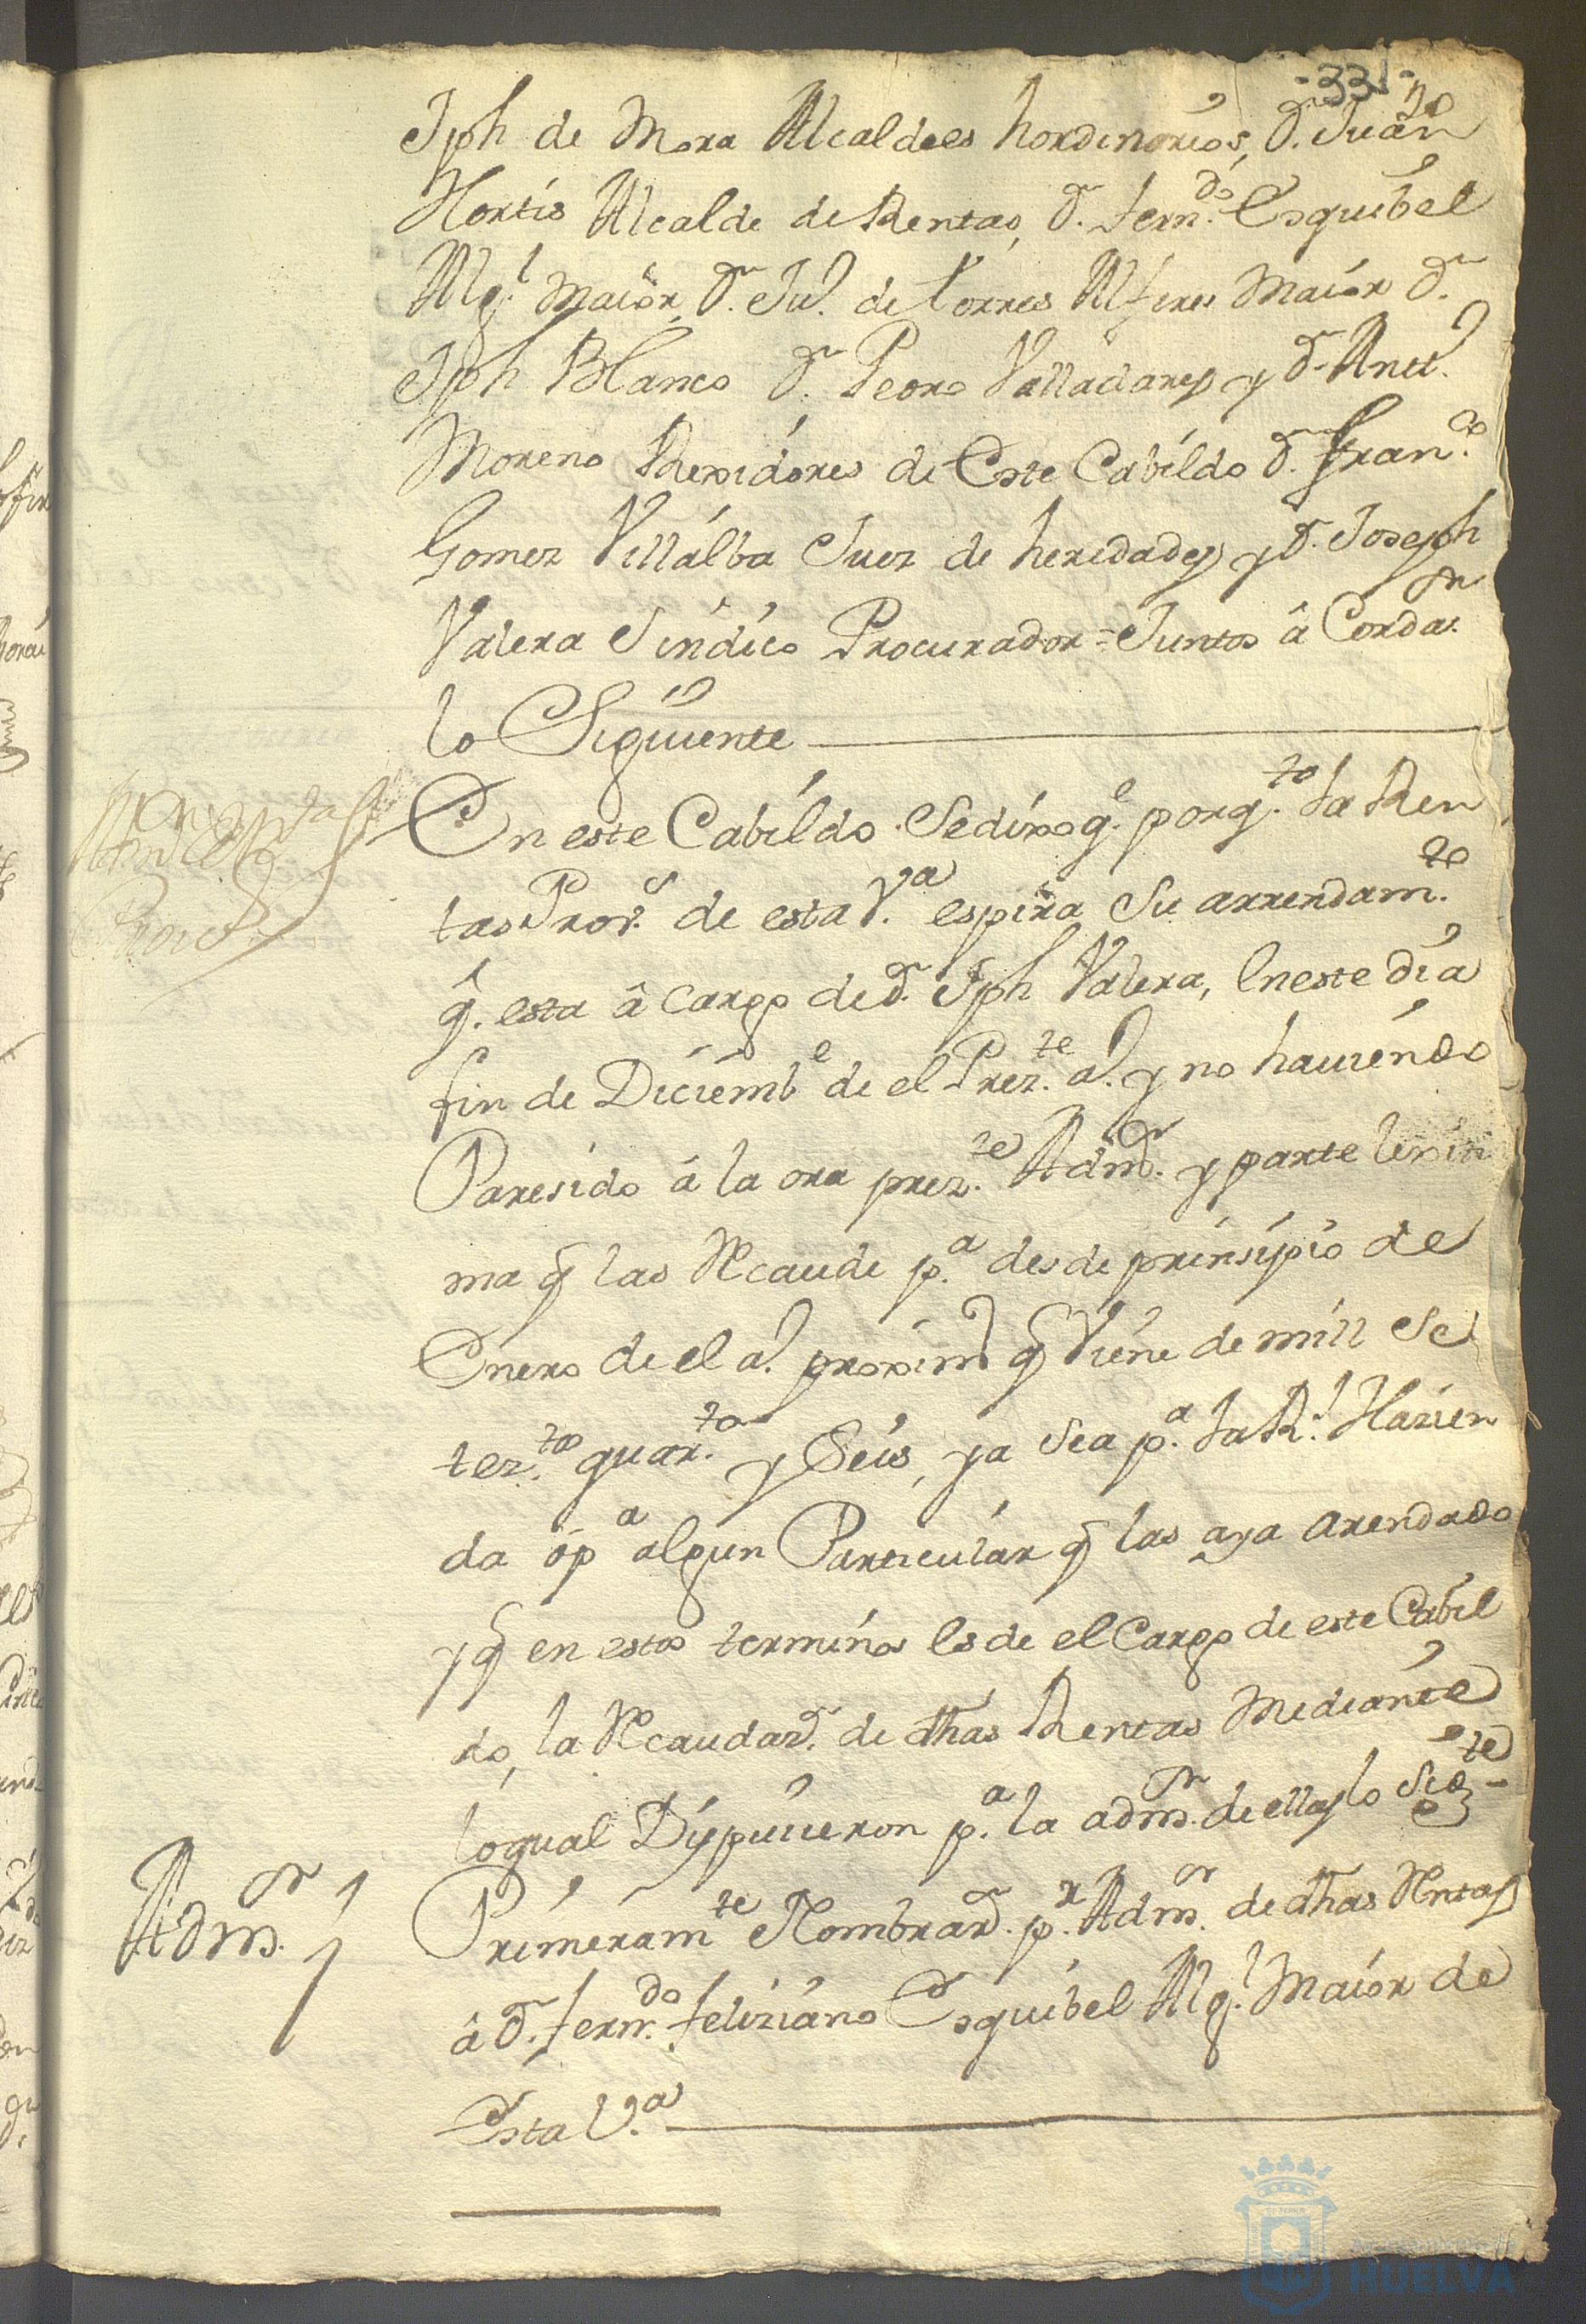 -33-
Jph de Mora Alcaldes hordinarios, Dn. Juan
Hortis Alcalde de Rentas, Dn. Fern.do Esquibel
Alg.l Maior, Dn. Ju.o de torres Alferes Maior Dn.
Jph Blanco Dn. Pedro Valladares y Dn. Ant.o
Moreno Rexidores de Este Cabildo Dn. Fran.co
Gomez Villalba Juez de heredades y Dn. Joseph
Valera Sindico Procurador = Juntos â Cordar.on
lo Siguiente
En este Cabildo Se dixo q.e por q.to la Ren
tas Prov.s de esta V.a espira Su arrendam.to
q.e esta â Cargo de Dn. Jph Valera, en este dia
fin de Diciemb.e de el Prez.te a.o y no haviendo
Paresido á la ora prez.te Adm.or y parte lexiti
ma q las Recaude p.a desde prinsipio de
Enero de el a.o proxim.o q Viene de mill Se
tez.tos quar.ta y Seis, ya Sea p.a la R.l Hazien
da ó p.a algun Particular q las aya arendado
y q en estos terminos es de el Cargo de este Cabil
do, la Recaudaz.n de dhas Rentas Mediante
loqual Dispusieron p.a la adm.on de ellas lo Sig.te
Adm.or
Primeram.te Nombrar.n p.r Adm.or de dhas Rentas
â Dn. Fern.do Feliziano Esquibel Alg.l Maior de
Esta V.a
HUELVA